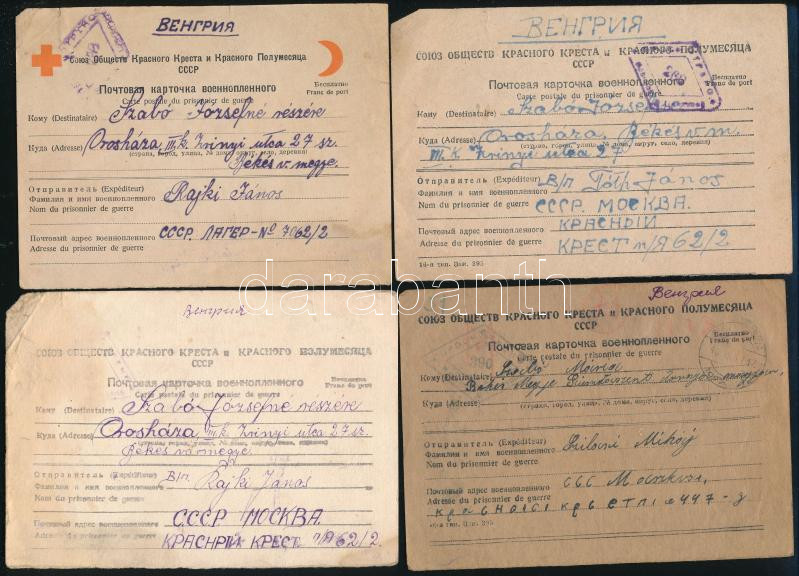 ВЕНГРИЯ
Союз Обществ Красного Креста и Красного Полумесяца
СССР
Почтовая карточка военнопленного
Бесплатно
Carte postale du prisonnier de guerre
Franc de port
Кому (Destinataire) Szabó Józsefné részére
Куда (Adresse) Orosháza, III.k. Zrinyi utca 27 sz.
(страна, город, улица, № дома, округ, село, деревня)
Békés v. megye.
Отправитель (Expéditeur)
Фамилия и имя военнопленного Rajki János
Nom du prisonnier de guerre
Почтовый адрес военнопленного СССР. ЛАГЕР-№ 7062/2
Adresse du prisonnier de guerre
ВЕНГРИЯ
СОЮЗ ОБЩЕСТВ КРАСНОГО КРЕСТА и КРАСНОГО ПОЛУМЕСЯЦА
СССР
Почтовая карточка военнопленного
Бесплатно
Carte postale du prisonnier de guerre
Franc de port
Кому (Destinataire) Szabó József
Куда (Adresse) Orosháza, Békés v.m.
(страна, город, улица, № дома, округ, село, деревня)
III.k. Zrinyi utca 27
Отправитель (Expéditeur) В/п Tóth János
Фамилия и имя военнопленного
Nom du prisonnier de guerre СССР. МОСКВА.
Почтовый адрес военнопленного КРАСНЫЙ
Adresse du prisonnier de guerre КРЕСТ п/Я 62/2
16-я тип. Зак. 295
Венгрия
СОЮЗ ОБЩЕСТВ КРАСНОГО КРЕСТА и КРАСНОГО ПОЛУМЕСЯЦА
СССР
Почтовая карточка военнопленного
Бесплатно
Carte postale du prisonnier de guerre
Franc de port
Кому (Destinataire) Szabó Józsefné részére
Куда (Adresse) Orosháza III.k. Zrinyi utca 27. sz.
Békés vármegye
Отправитель (Expéditeur) В/п. Rajki János
Фамилия и имя военнопленного
Nom du prisonnier de guerre
Почтовый адрес военнопленного СССР МОСКВА.
Adresse du prisonnier de guerre КРАСНЫЙ КРЕСТ п/Я 62/2.
Венгрия
СОЮЗ ОБЩЕСТВ КРАСНОГО КРЕСТА и КРАСНОГО ПОЛУМЕСЯЦА
СССР
Почтовая карточка военнопленного
Бесплатно
Carte postale du prisonnier de guerre
Franc de port
Кому (Destinataire) Szabó
Куда (Adresse)
(страна, город, улица, № дома, округ, село, деревня)
Отправитель (Expéditeur)
Фамилия и имя военнопленного
Nom du prisonnier de guerre
Почтовый адрес военнопленного
Adresse du prisonnier de guerre
16-я тип. Зак. 295
darabanth